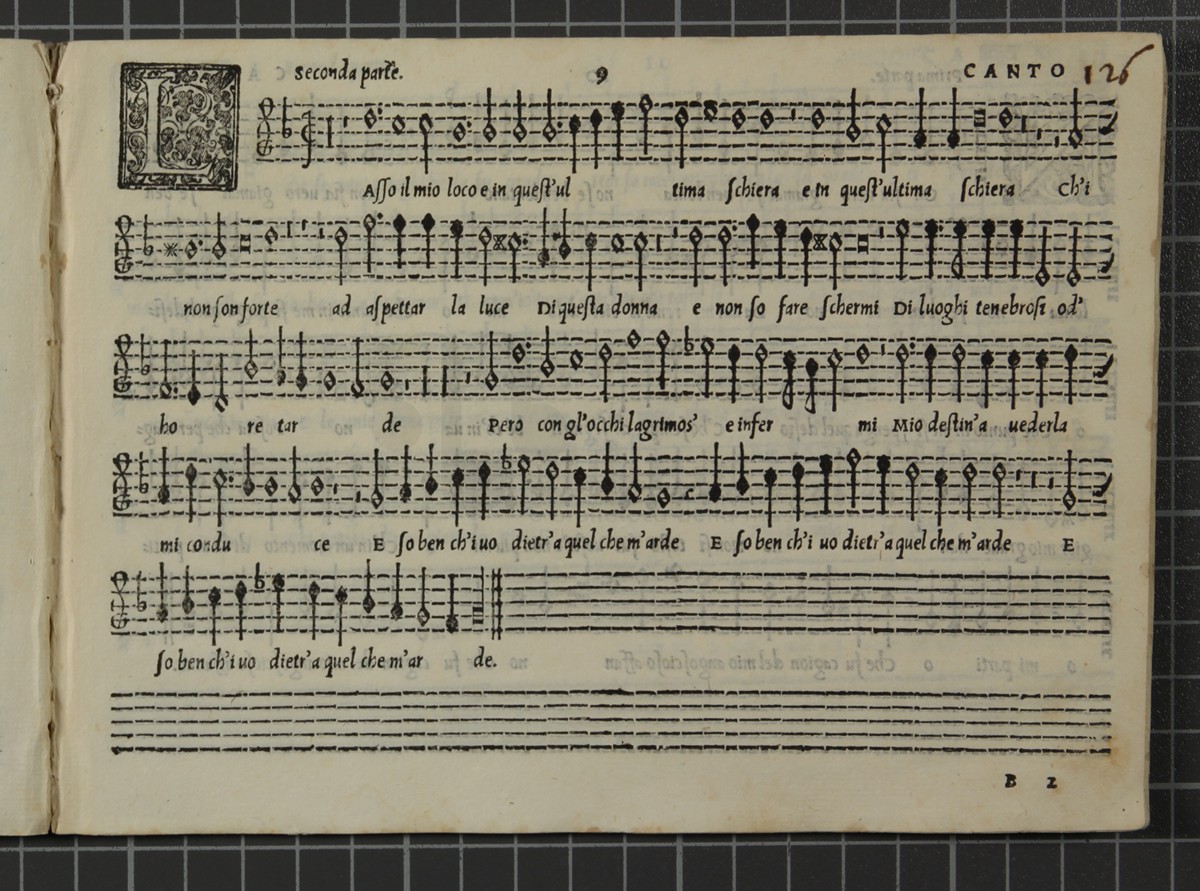 Seconda parte. 9 CANTO 126
LAſſo il mio loco e in queſt'ul tima ſchiera e in queſt'ultima ſchiera Ch'i
non ſon forte ad aſpettar la luce Di queſta donna e non ſo fare ſchermi Di luoghi tenebroſi od'
ho re tar de Pero con gl'occhi lagrimos' e infer mi Mio deſtin'a uederla
mi condu ce E ſo ben ch'i uo dietr'a quel che m'arde E ſo ben ch'i uo dietr'a quel che m'arde E
ſo ben ch'i uo dietr'a quel che m'ar de.
B 2